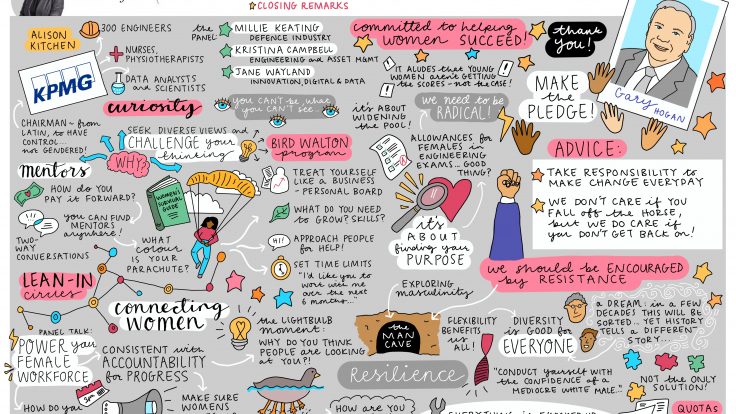 CLOSING REMARKS
ALISON
KITCHEN
300 ENGINEERS
NURSES,
PHYSIOTHERAPISTS
DATA ANALYSTS
and SCIENTISTS
KPMG
the
PANEL
MILLIE KEATING
DEFENCE INDUSTRY
KRISTINA CAMPBELL
ENGINEERING and ASSET MGMT
JANE WAYLAND
INNOVATION, DIGITAL & DATA
committed to helping
women SUCCEED!
thank
you!
Gary
HOGAN
IT ALUDES that YOUNG
WOMEN aren't GETTING
the SCORES - not the CASE!
MAKE
the
PLEDGE!
curiosity
you CAN'T be, what
you CAN'T see...
it's ABOUT
WIDENING
the POOL!
we need to be
RADICAL!
CHAIRMAN ~ from
LATIN, to HAVE
CONTROL...
not GENDERED!
SEEK DIVERSE VIEWS and
CHALLENGE your
thinking
WHY
BIRD WALTON
program
ALLOWANCES for
FEMALES in
ENGINEERING
EXAMS... GOOD
THING?
ADVICE:
TAKE RESPONSIBILITY to
MAKE CHANGE EVERYDAY
WE DON'T CARE if YOU
FALL off the HORSE,
but WE DO CARE if
you DON'T GET BACK on!
mentors
HOW do YOU
PAY it FORWARD?
you CAN FIND
MENTORS
anywhere!
TWO-
WAY
CONVERSATIONS
WOMEN'S
SURVIVAL
GUIDE
WHAT
COLOUR
IS YOUR
PARACHUTE?
TREAT YOURSELF
LIKE a BUSINESS
- PERSONAL BOARD
WHAT DO YOU NEED
to GROW? SKILLS?
HI!
APPROACH PEOPLE
for HELP!
SET TIME LIMITS
"I'd LIKE you to
WORK with ME
over the NEXT
6 MONTHS..."
it's
ABOUT
finding your
PURPOSE
we should be ENCOURAGED
by RESISTANCE
LEAN-IN
circles
connecting
WOMEN
the LIGHTBULB
MOMENT:
WHY DO YOU THINK
PEOPLE are LOOKING
at YOU?!
EXPLORING
masculinity
the
MAN
CAVE
FLEXIBILITY
BENEFITS
us ALL!
DIVERSITY
is GOOD for
EVERYONE
A DREAM... in a FEW
DECADES THIS WILL BE
SORTED... YET HISTORY
TELLS a DIFFERENT
STORY...
PANEL TALK:
POWER you
FEMALE
WORKFORCE
CONSISTENT with
ACCOUNTABILITY
for PROGRESS
Resilience
"CONDUCT yourself WITH
the CONFIDENCE of a
MEDIOCRE WHITE MALE."
NOT the ONLY
SOLUTION!
HOW do YOU
5pm
MAKE SURE
WOMENS
HOW are YOU
QUOTAS